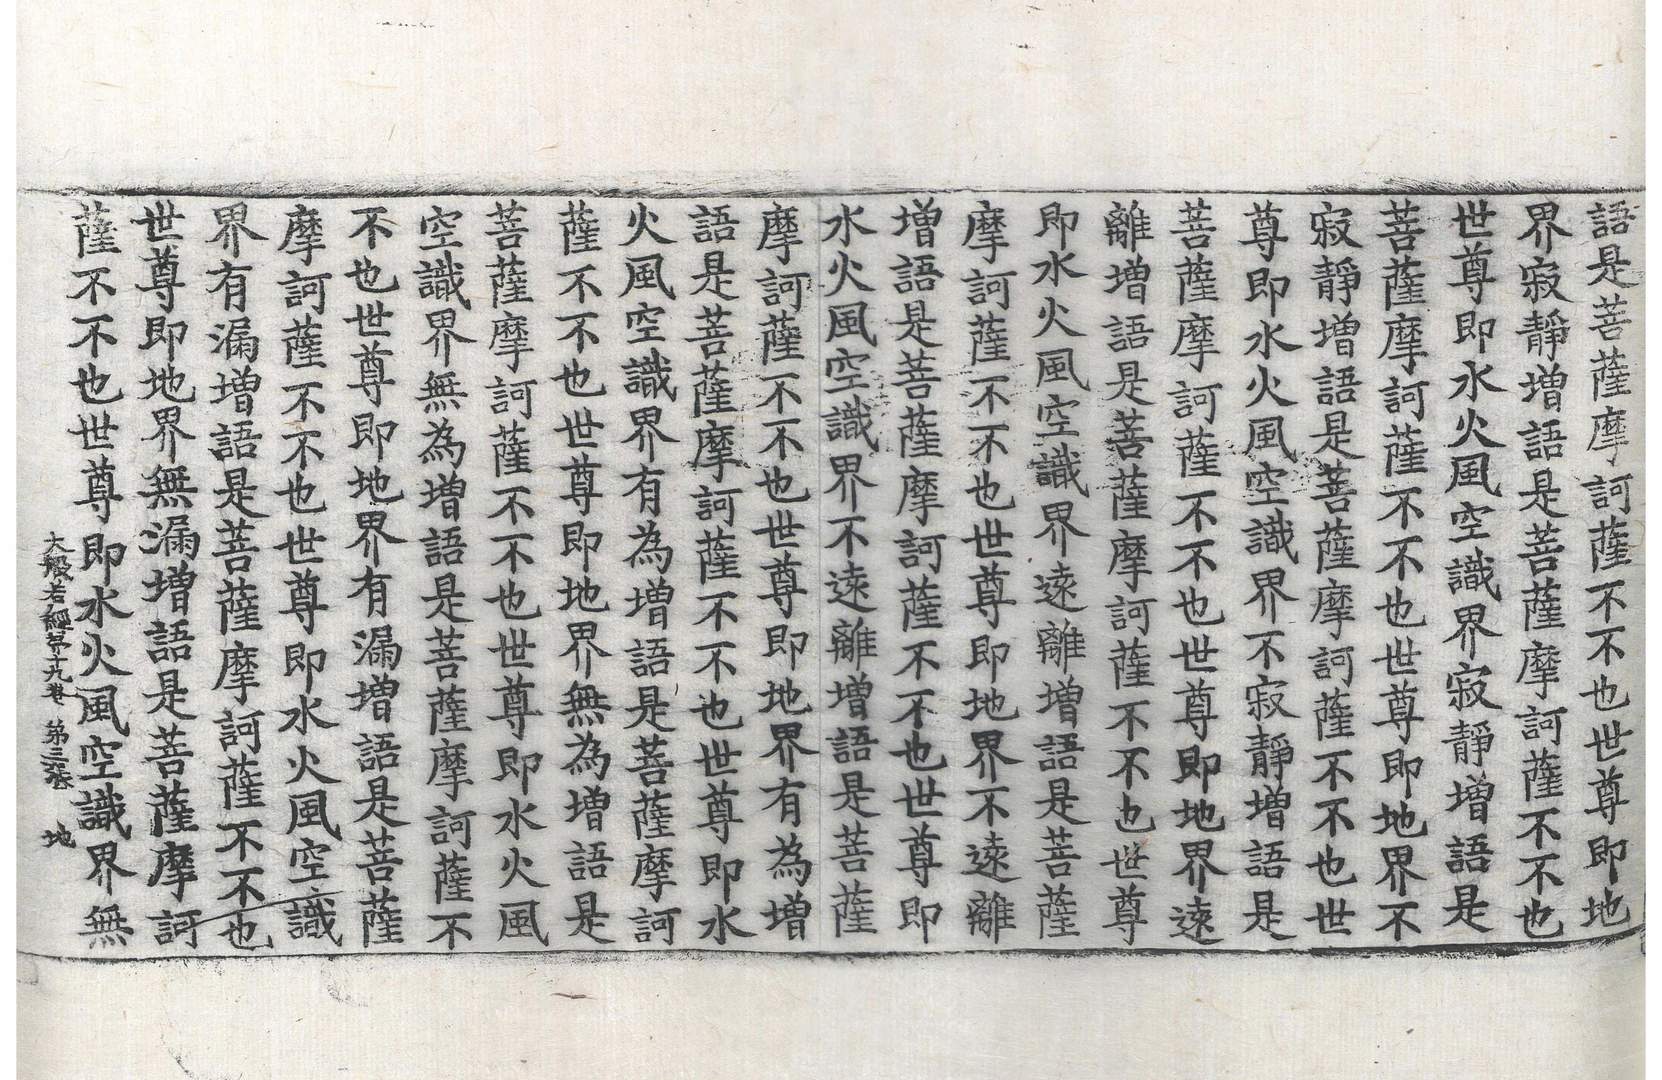 語是菩薩摩訶薩不不也世尊即地
界寂靜增語是菩薩摩訶薩不不也
世尊即水火風空識界寂靜增語是
菩薩摩訶薩不不也世尊即地界不
寂靜增語是菩薩摩訶薩不不也世
尊即水火風空識界不寂靜增語是
菩薩摩訶薩不不也世尊即地界遠
離增語是菩薩摩訶薩不不也世尊
即水火風空識界遠離增語是菩薩
摩訶薩不不也世尊即地界不遠離
增語是菩薩摩訶薩不不也世尊即
水火風空識界不遠離增語是菩薩
摩訶薩不不也世尊即地界有為增
語是菩薩摩訶薩不不也世尊即水
火風空識界有為增語是菩薩摩訶
薩不不也世尊即地界無為增語是
菩薩摩訶薩不不也世尊即水火風
空識界無為增語是菩薩摩訶薩不
不也世尊即地界有漏增語是菩薩
摩訶薩不不也世尊即水火風空識
界有漏增語是菩薩摩訶薩不不也
世尊即地界無漏增語是菩薩摩訶
薩不不也世尊即水火風空識界無
大般若經第十九卷 第三張 地